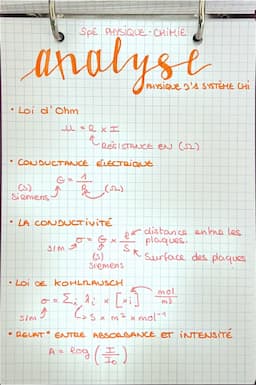 SPÉ PHYSIQUE-CHIMIE
analyse
PHYSIQUE D'1 SYSTÈME CHI
• LOI d'Ohm
U = R x I
RÉSISTANCE EN (Ω)
• CONDUCTANCE ÉLECTRIQUE
G = 1/R
(S) Siemens
(Ω)
• LA CONDUCTIVITÉ
σ = G x l/S
distance entre les plaques.
S/m
(S) Siemens
Surface des plaques
• LOI DE KOHLRAUSCH
σ = Σi λi x [xi]
mol/m3
S/m
S x m² x mol⁻¹
• RELAT° ENTRE ABSORBANCE ET INTENSITÉ
A = log (I/I₀)